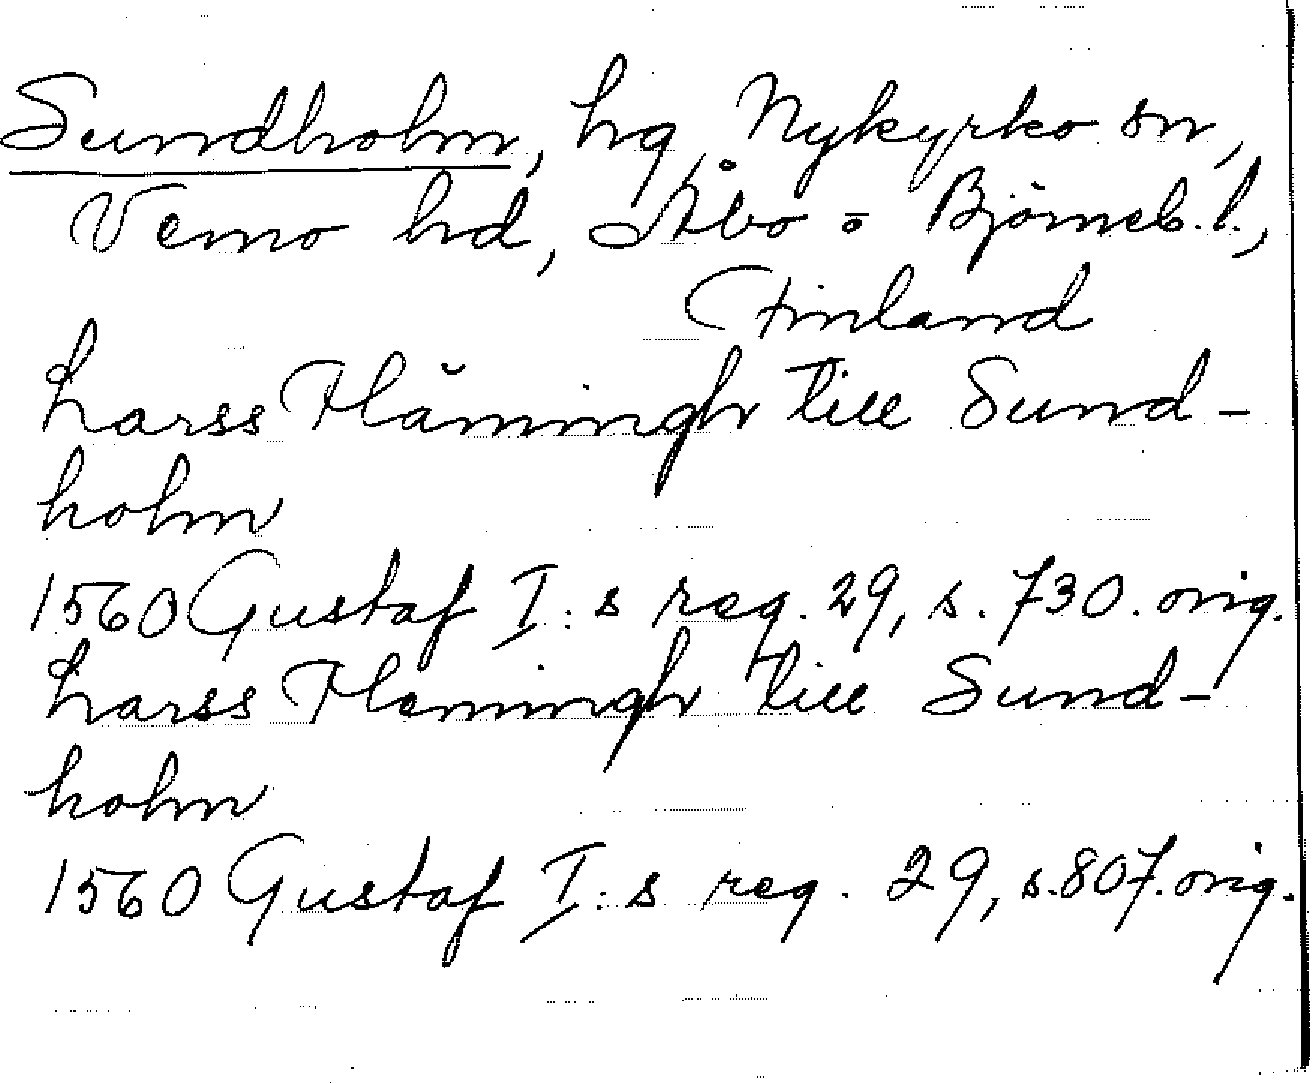 Sundholm, hg, Nykyrko sn,
Vemo hd, Åbo o Björneb. l.,
Finland
Larss Flämingh till Sund-
holm
1560 Gustaf I:s reg. 29, s. 730. orig.
Larss Flemingh till Sund-
holm
1560 Gustaf I:s reg. 29, s. 807. orig.